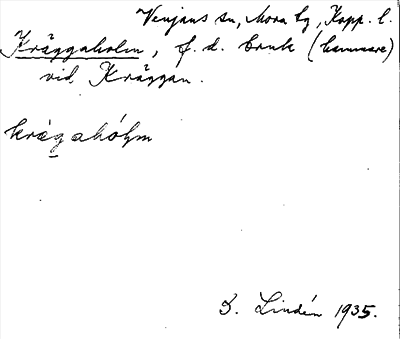 Venjans sn, Mora tg, Kopp. l.
Kräggaholm, f. d. bruk (hammare)
vid Kräggan.
krägahóļm
S. Lindén 1935.